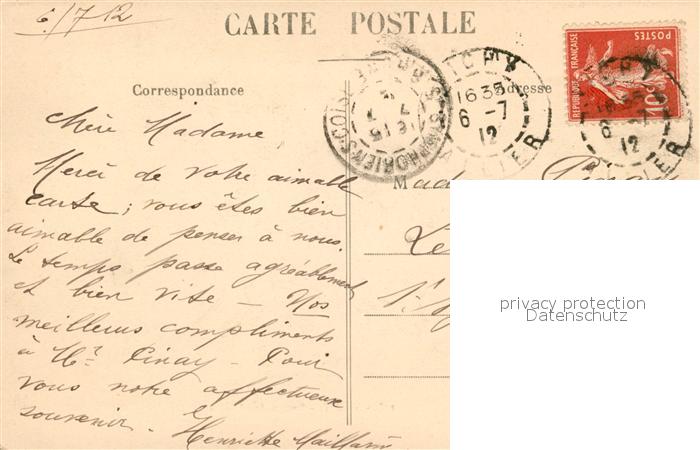 6/7/12
CARTE POSTALE
Correspondance
Adresse
REPUBLIQUE FRANÇAISE
POSTES
10c
VICHY
16 35
6 - 7
12
ALLIER
Chère Madame
Merci de votre aimable
carte; vous êtes bien
aimable de penser à nous.
Le temps passe agréablement
et bien vite — Nos
meilleurs compliments
à Mr. Pinay — Pour
vous notre affectueux
souvenir.
Henriette Maillard
Mad
Le
privacy protection
Datenschutz